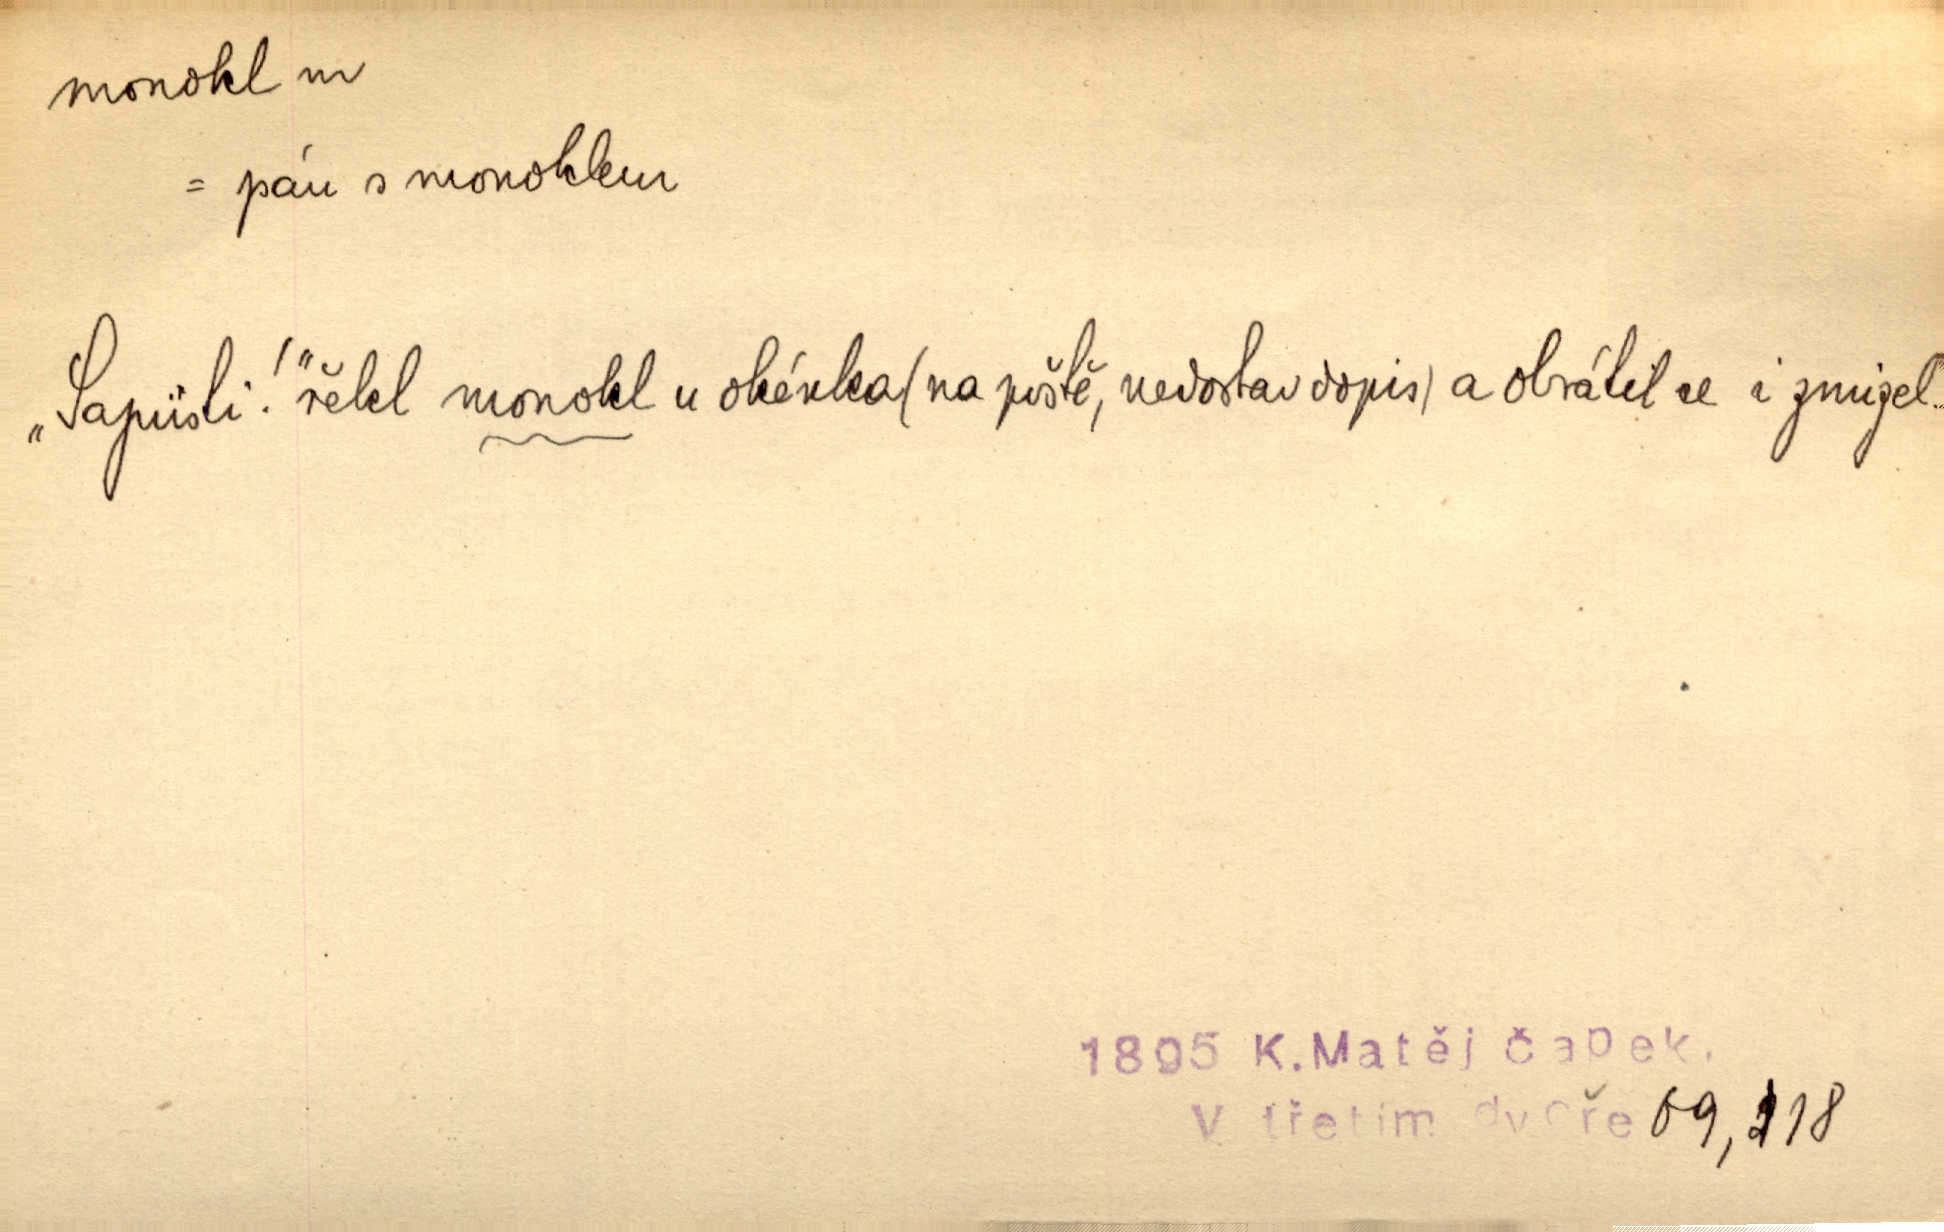 monokl m
= pán s monoklem
„Sapristi!" řekl monokl u okénka (na poště, nedostav dopis) a obrátil se i zmizel..
1895 K.Matěj Čapek.
V třetím dvoře 69, 118